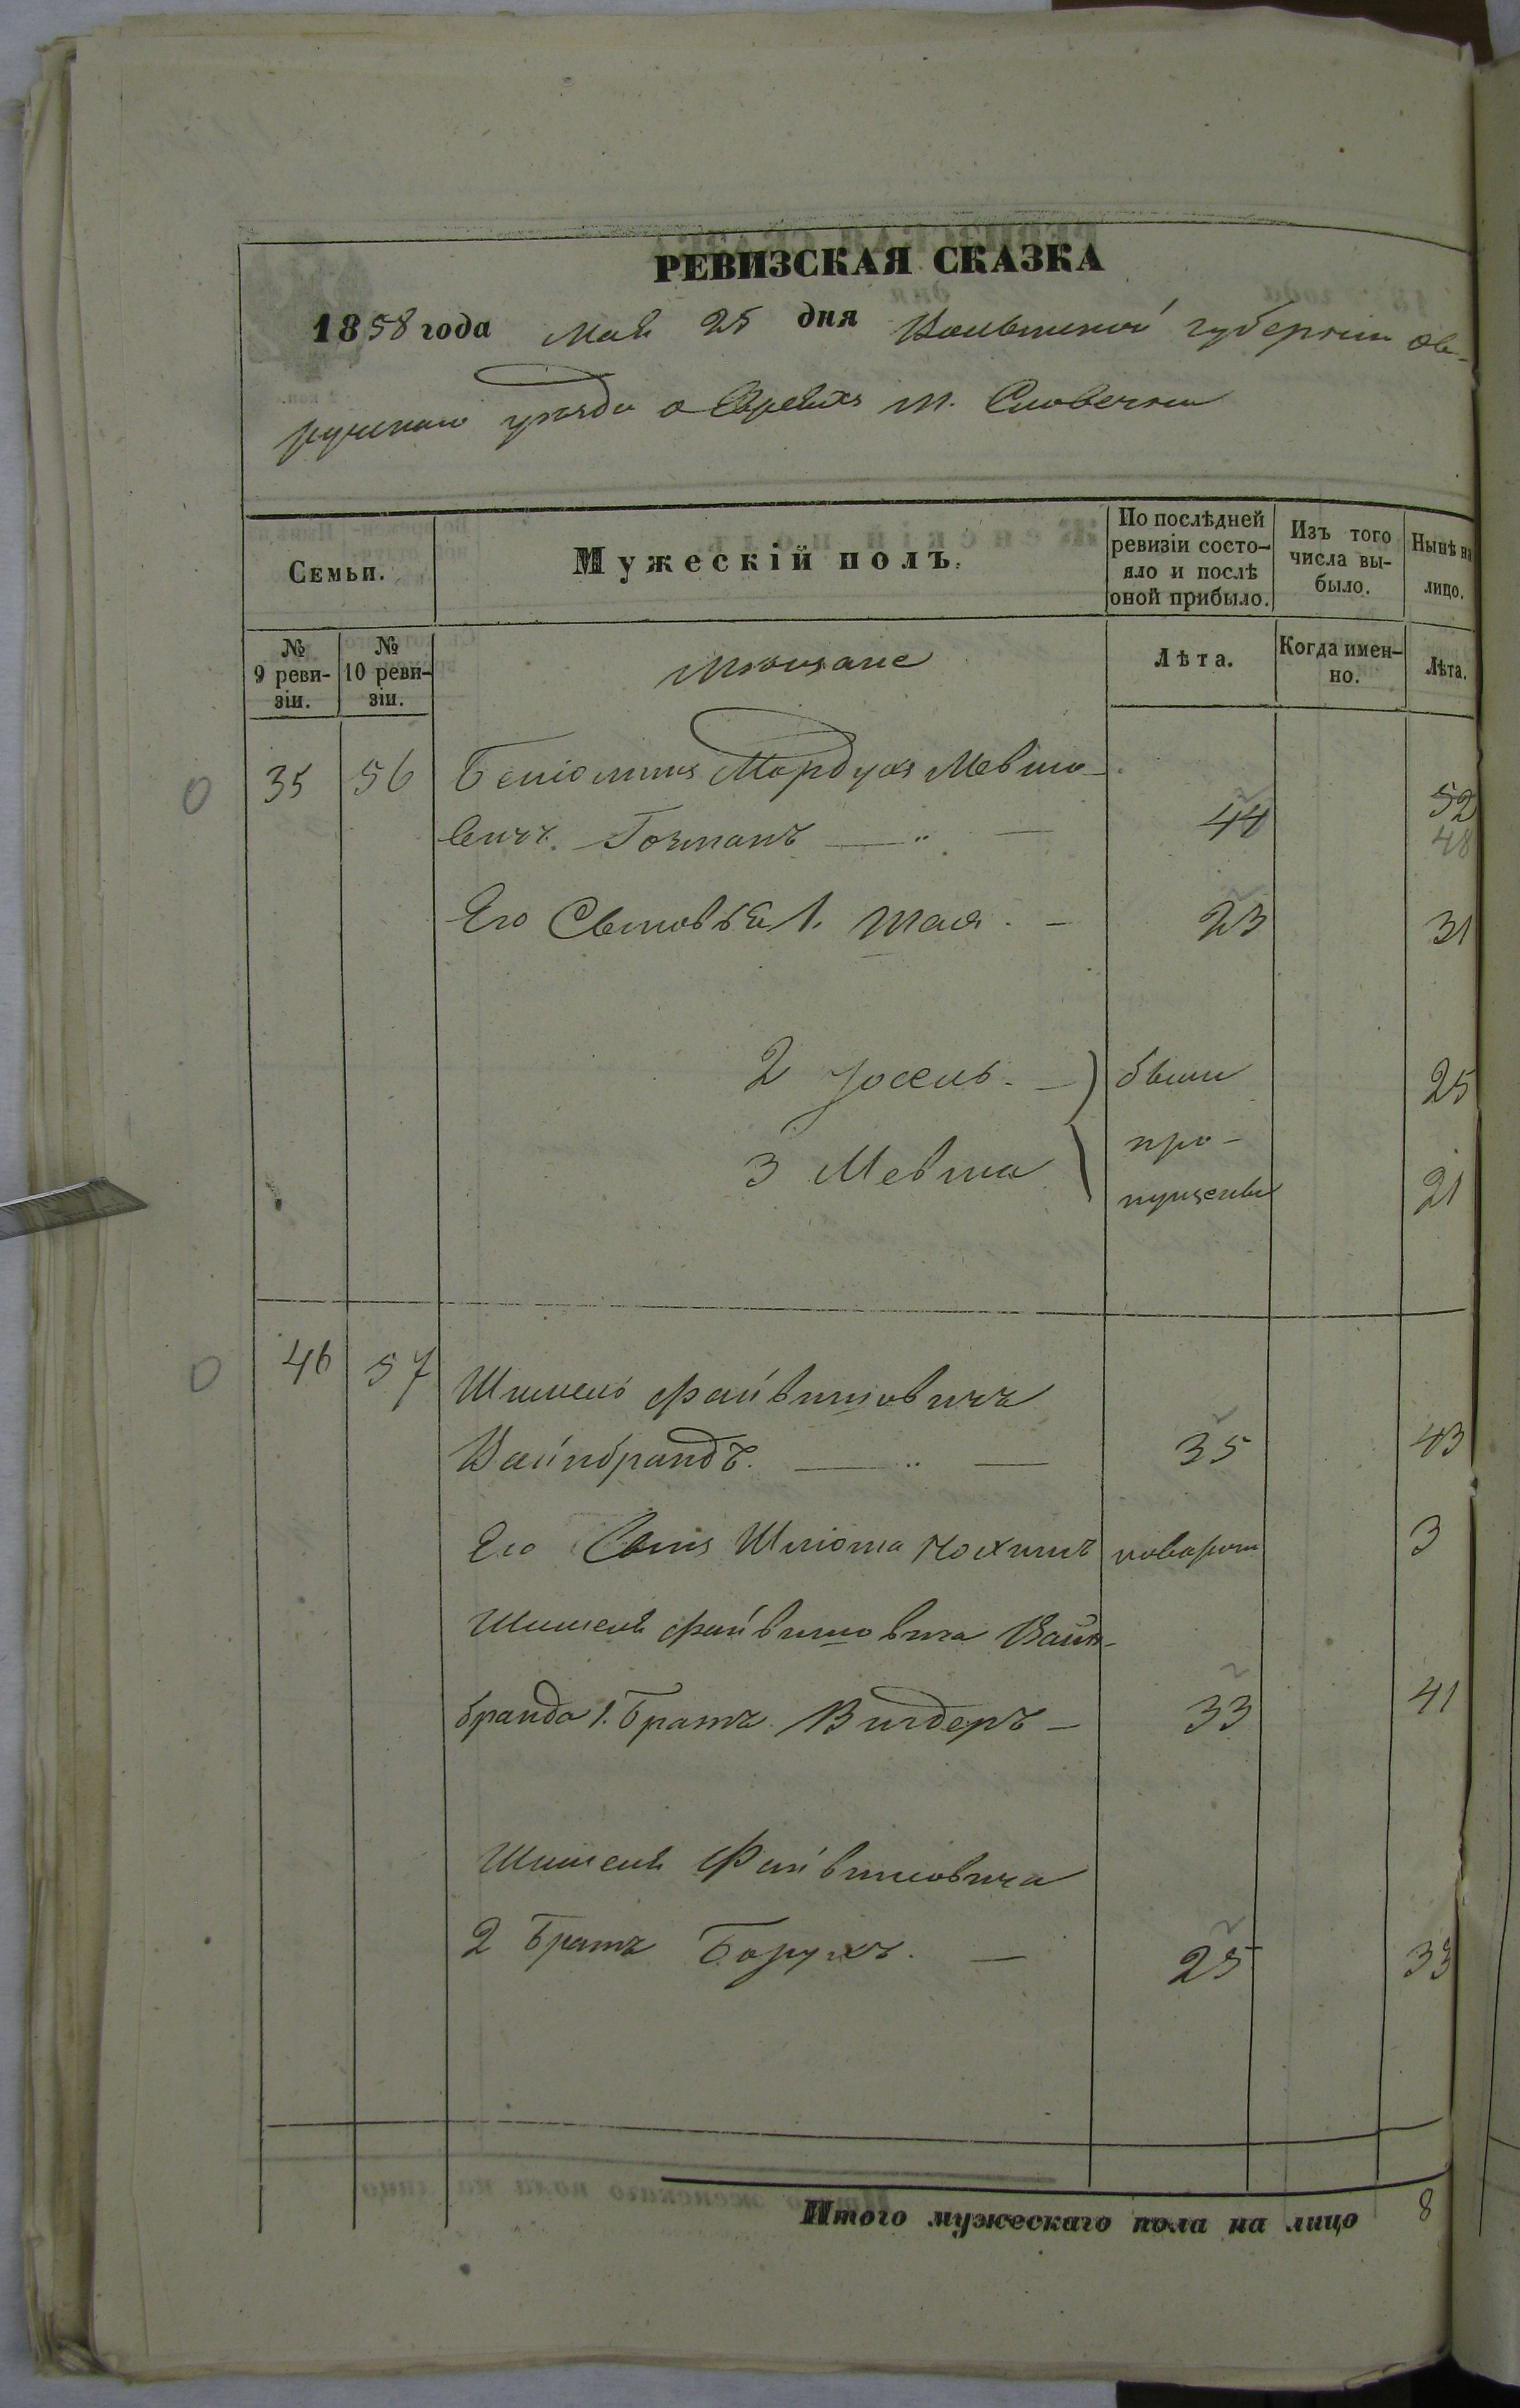 РЕВИЗСКАЯ СКАЗКА
1858 года Мая 25 дня Волынской губерніи Ов-
ручскаго уѣзда о Евреяхъ м. Словечна
Семьи.
Мужескій полъ.
По послѣдней ревизіи состо-яло и послѣ оной прибыло.
Изъ того числа вы-было.
Нынѣ на лицо.
№ 9 реви-зіи.
№ 10 реви-зіи.
мѣщане
Лѣта.
Когда имен-но.
Лѣта.
35 56 Беніоминъ Мордухъ Мевшо-
вичъ Гохманъ 44 52
48
Его Сыновья 1. Шая 23 31
2 Іосель были 25
3 Мевша про-
пущены 21
46 57 Шимель Файвишовичъ
Вайнбрандъ 35 43
Его Сынъ Шліома Нохимъ новорож 3
Шимеля Файвишовича Вайн-
бранда 1. Братъ Вигдеръ 33 41
Шимеля Файвишовича
2 Братъ Борухъ 25 33
Итого мужескаго пола на лицо 8